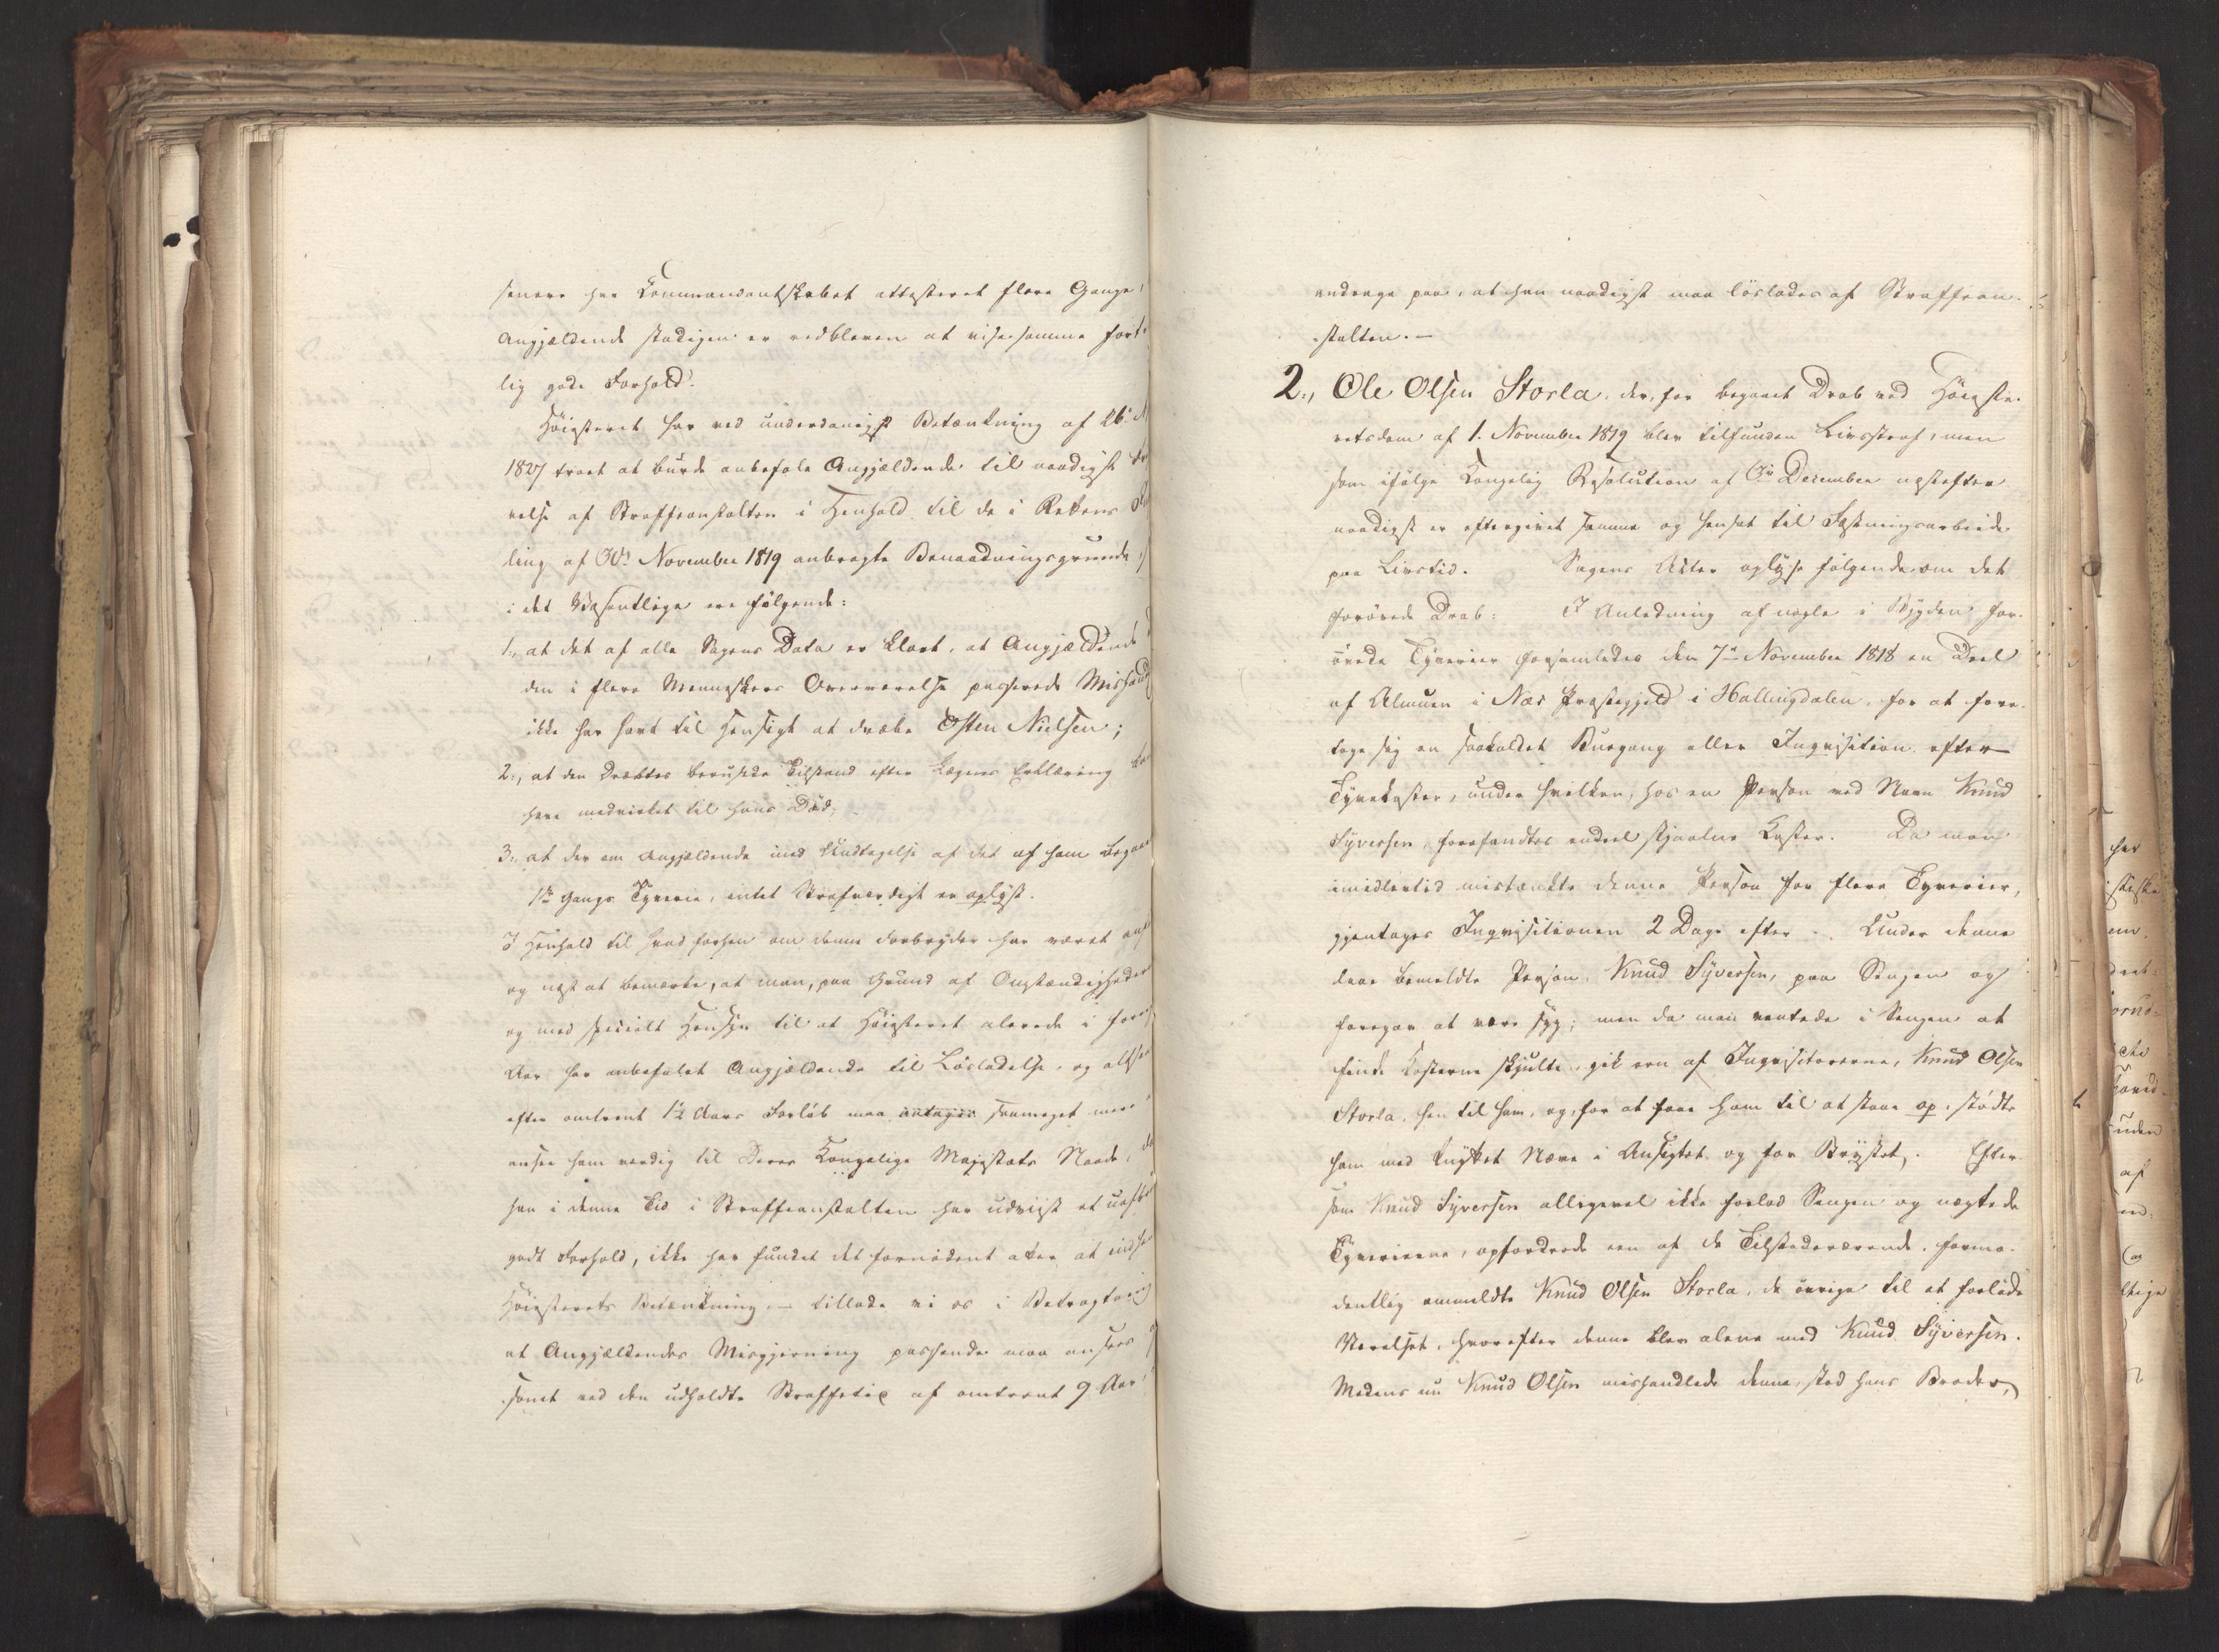 senere har Kommandantskabet attesteret flere Gange,
Angjældende stadigen er vedbleven at vise samme fort
lig gode Forhold.
Høiesteret har ved underdanigst Betænkning af 26de
1827 troet at burde anbefale Angjældende til naadigst
velse af Straffeanstalten i Henhold til de i Rettens
ling af November 1819 anbragte Benaadningsgrunde,
i det Væsentlige ere følgende:
1., at det af alle Sagens Data er klart, at Angjældende
den i flere Menneskers Overværelse passerede Mishand
ikke har havt til Hensigt at dræbe Østen Nielsen;
2., at den Dræbtes berusede Tilstand efter Lægens Erklæring
have medvirket til hans Død;
3., at der om Angjældende med Undtagelse af det af ham begaaede
1ste Gangs Tyverie, intet Strafværdigt er oplyst.
I Henhold til hvad forhen om denne Forbryder har været
og næst at bemærke, at man, paa Grund af Omstændigheder
og med specielt Hensyn til at Høiesteret alerede i forrige
Aar har anbefalet Angjældende til Løsladelse, og altsaa
efter omtrent 1½ Aars Forløb maa antages saameget mere
ansee ham værdig til Deres Kongelige Majestæts Naade,
han i denne Tid i Straffeanstalten har udviist et
godt Forhold, ikke har fundet det fornødent atter at
Høiesterets Betænkning, – tillade vi os i Betragtning
at Angjældendes Misgjerning passende maa ansees
sonet ved den udholdte Straffetid af omtrent 9 Aar,
andrage paa, at han naadigst maa løslades af Straffean-
stalten. –
2., Ole Olsen Storla, der, for begaaet Drab ved Høieste-
retsdom af 1. November 1819 blev tilfunden Livsstraf, men
som ifølge Kongelig Resolution af December næstefter
naadigst er eftergivet samme og hensat til Fæstningsarbeide
paa Livstid. Sagens Akter oplyse følgende om det
forøvede Drab: I Anledning af nogle i Bygden for-
øvede Tyverier forsamledes den 7de November 1818 en Deel
af Almuen i Næs Præstegjeld i Hallingdalen, for at fore-
tage sig en saakaldet Buegang eller Inqvisition efter
Tyvekoster, under hvilken, hos en Person ved Navn Knud
Syversen, forefandtes endeel stjaalne Koster. Da man
imidlertid mistænkte denne Person for flere Tyverier,
gjentoges Inqvisitionen 2 Dage efter. Under denne
laae bemeldte Person, Knud Syversen, paa Sengen og
foregav at være syg; men da man ventede i Sengen at
finde Kosterne skjulte, gik een af Inqvisitorerne, Knud Olsen
Storla, hen til ham, og, for at faae ham til at staae op, stødte
ham med knyttet Næve i Ansigtet og for Brystet. Efter-
som Knud Syversen alligevel ikke forlod Sengen og nægtede
Tyverierne, opfordrede een af de Tilstedeværende, formo-
dentlig ommeldte Knud Olsen Storla, de øvrige til at forlade
Værelset, hvorefter denne blev alene med Knud Syversen.
Medens nu Knud Olsen mishandlede denne, stod hans Broder,